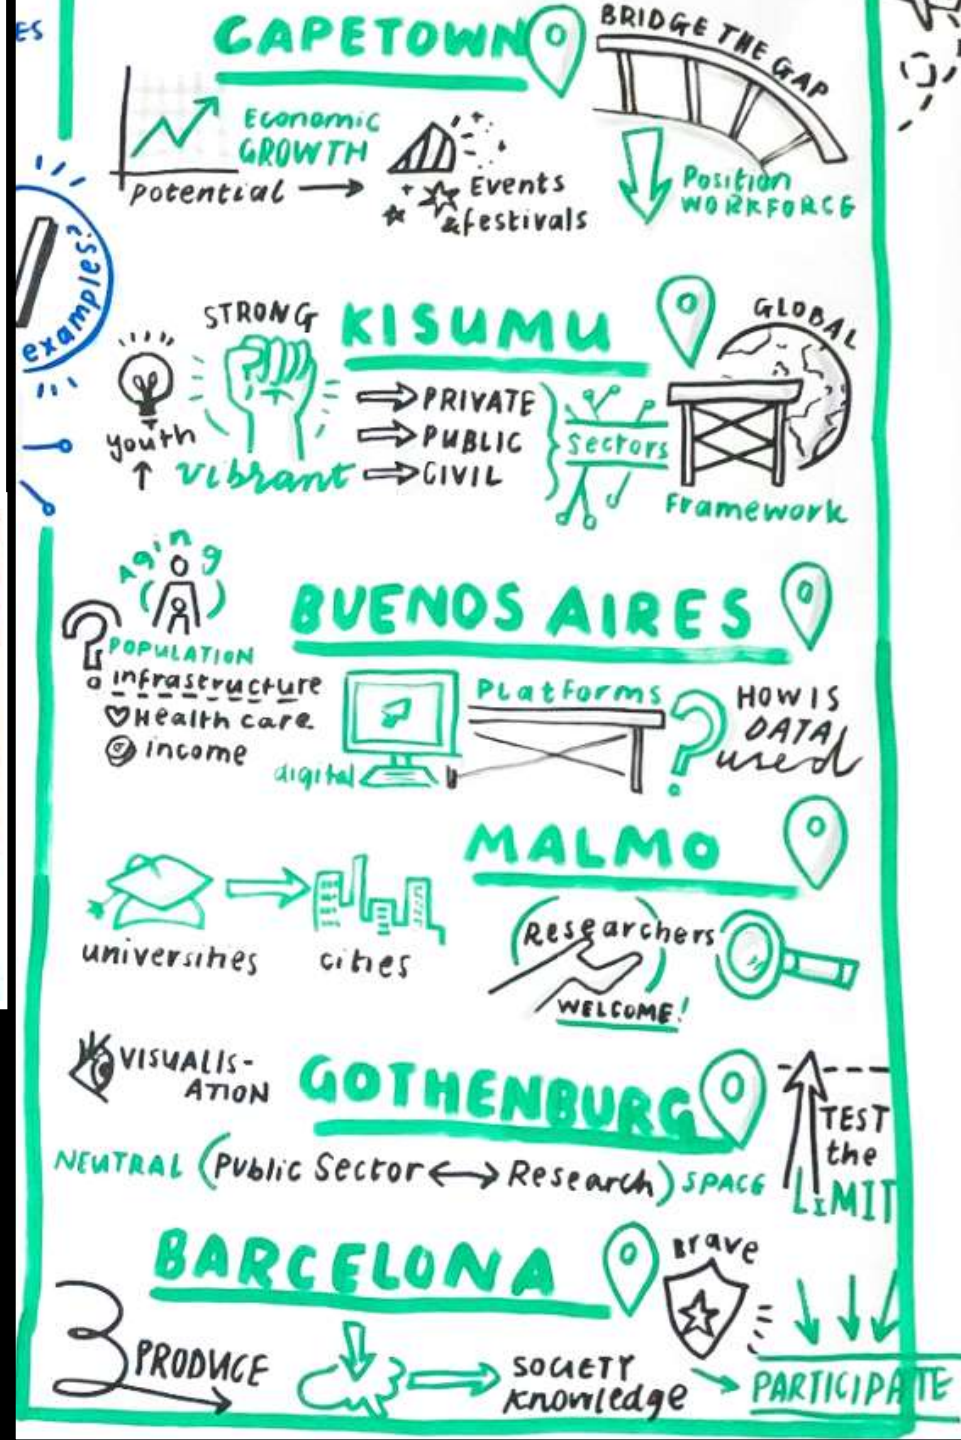 ES
CAPETOWN
BRIDGE THE GAP
Economic
GROWTH
potential
Events
& festivals
Position
WORKFORCE
examples?
STRONG
KISUMU
GLOBAL
youth
vibrant
PRIVATE
PUBLIC
CIVIL
Sectors
Framework
Aging
POPULATION
infrastructure
Health care
income
BUENOS AIRES
digital
Platforms
HOW IS
DATA
used
MALMO
universities
cities
Researchers
WELCOME!
VISUALIS-
ATION
GOTHENBURG
TEST
the
LIMIT
NEUTRAL (Public Sector ↔ Research) SPACE
BARCELONA
Brave
PRODUCE
SOCIETY
Knowledge
PARTICIPATE